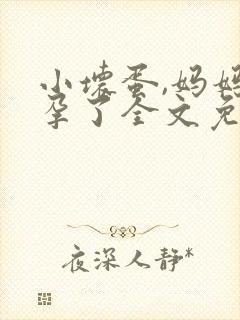 小壞蛋,妈妈
孕了全文免
夜深人静*